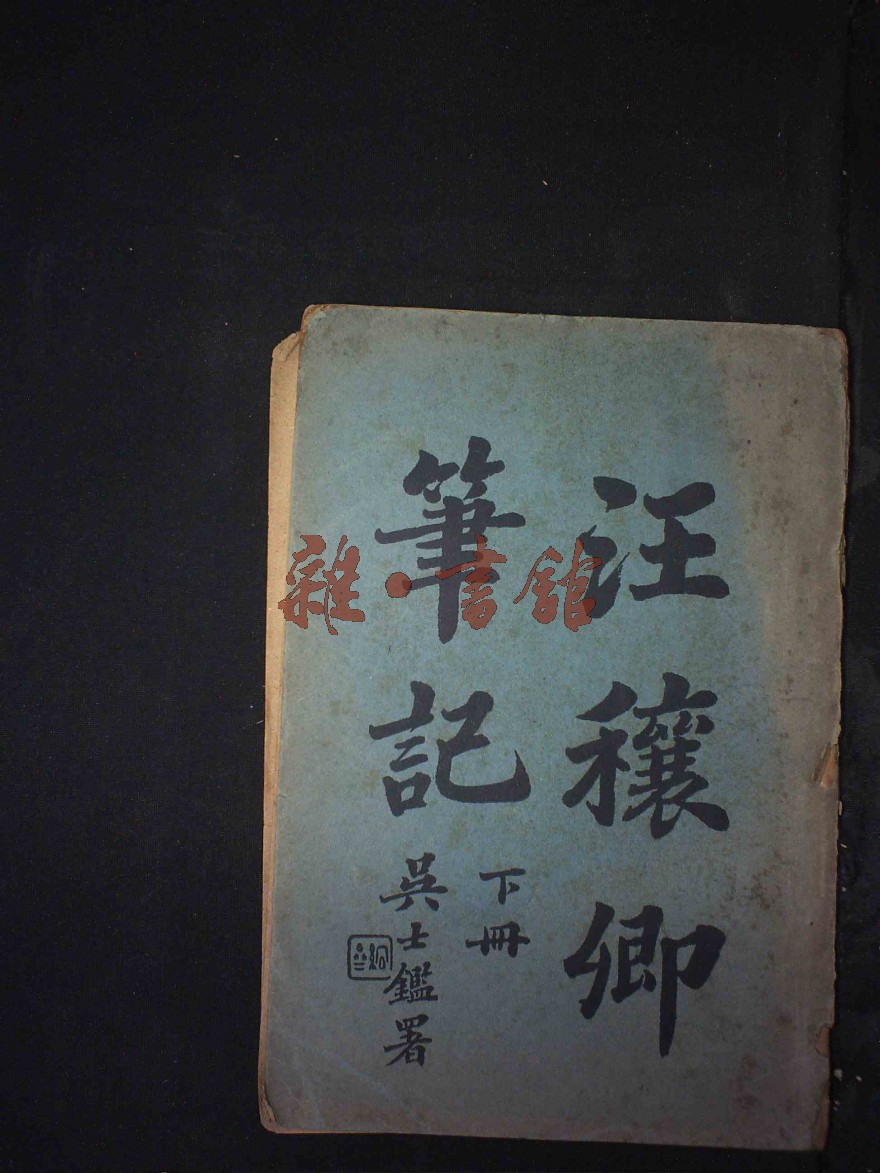 汪穰卿
筆記
下冊
吳士鑑署
雜·書館